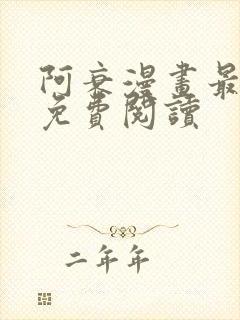 阿衰漫畫最
免費閱讀
二年年